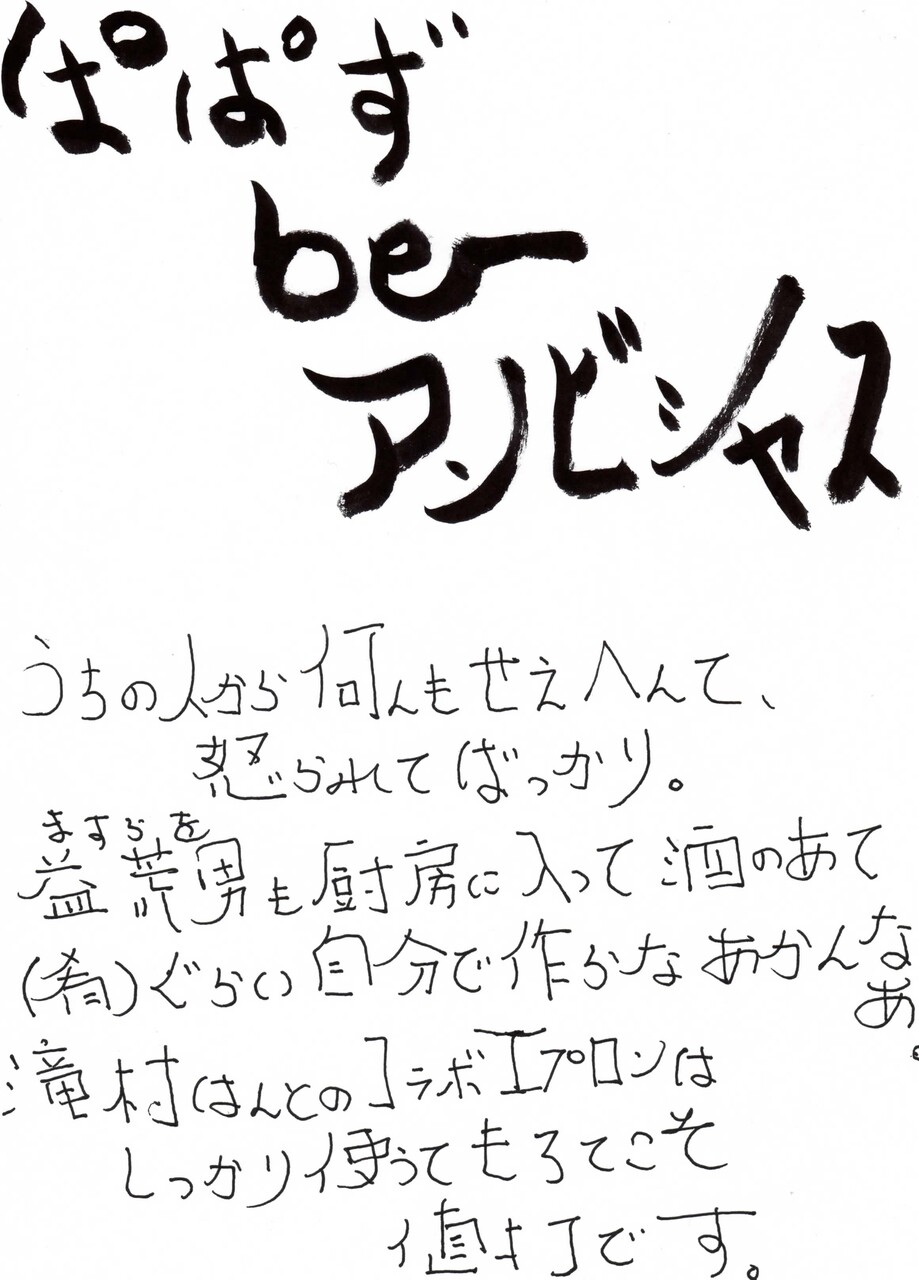 ぱぱず
be
アンビシャス
うちの人から何んもせえへんて、
怒られてばっかり。
ますらを
益荒男も厨房に入って酒のあて
(肴)ぐらい自分で作らなあかんなあ。
滝村はんとのコラボエプロンは
しっかり使うてもろてこそ
値打です。